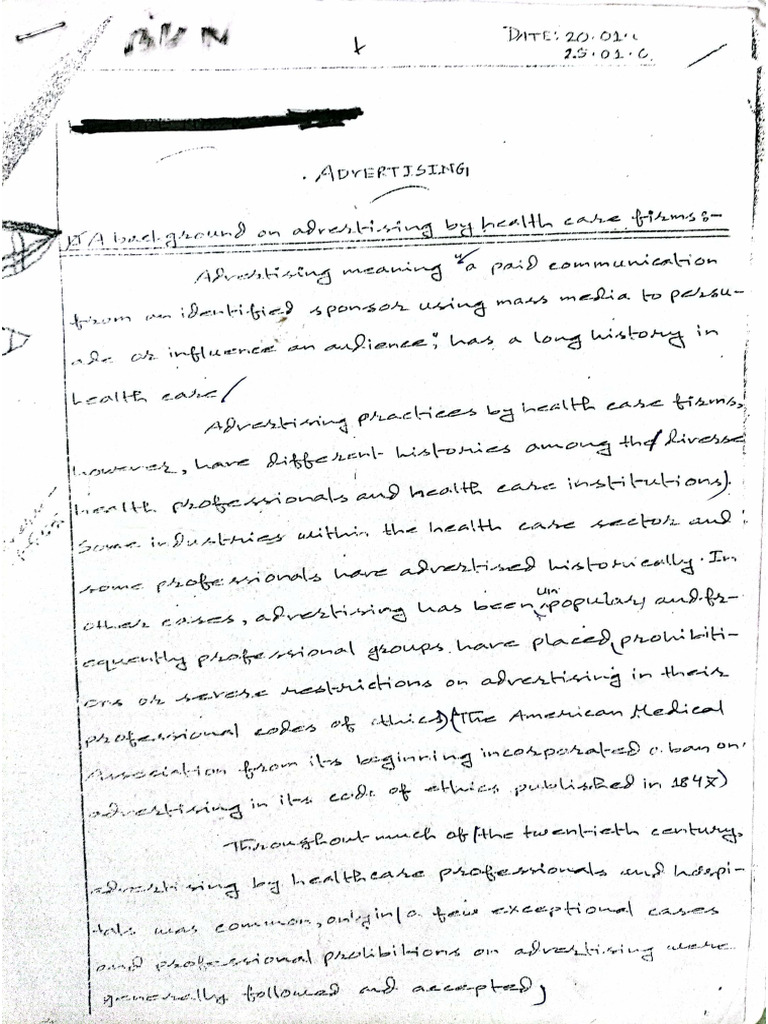 DATE: 20.01.
25.01.
ADVERTISING
A background on advertising by health care firms:-
Advertising meaning "a paid communication
from an identified sponsor using mass media to persu-
ade or influence an audience", has a long history in
health care
Advertising practices by health care firms,
however, have different histories among the diverse
health professionals and health care institutions).
Some industries within the health care sector and
some professionals have advertised historically. In
other cases, advertising has been unpopular, and fr-
equently professional groups have placed, prohibiti-
ons or severe restrictions on advertising in their
professional codes of ethics) (The American Medical
Association from its beginning incorporated a ban on
advertising in its code of ethics published in 184)
Throughout much of the twentieth century,
advertising by healthcare professionals and hospi-
tals was common, only in a few exceptional cases
and professional prohibitions on advertising were
generally followed and accepted,